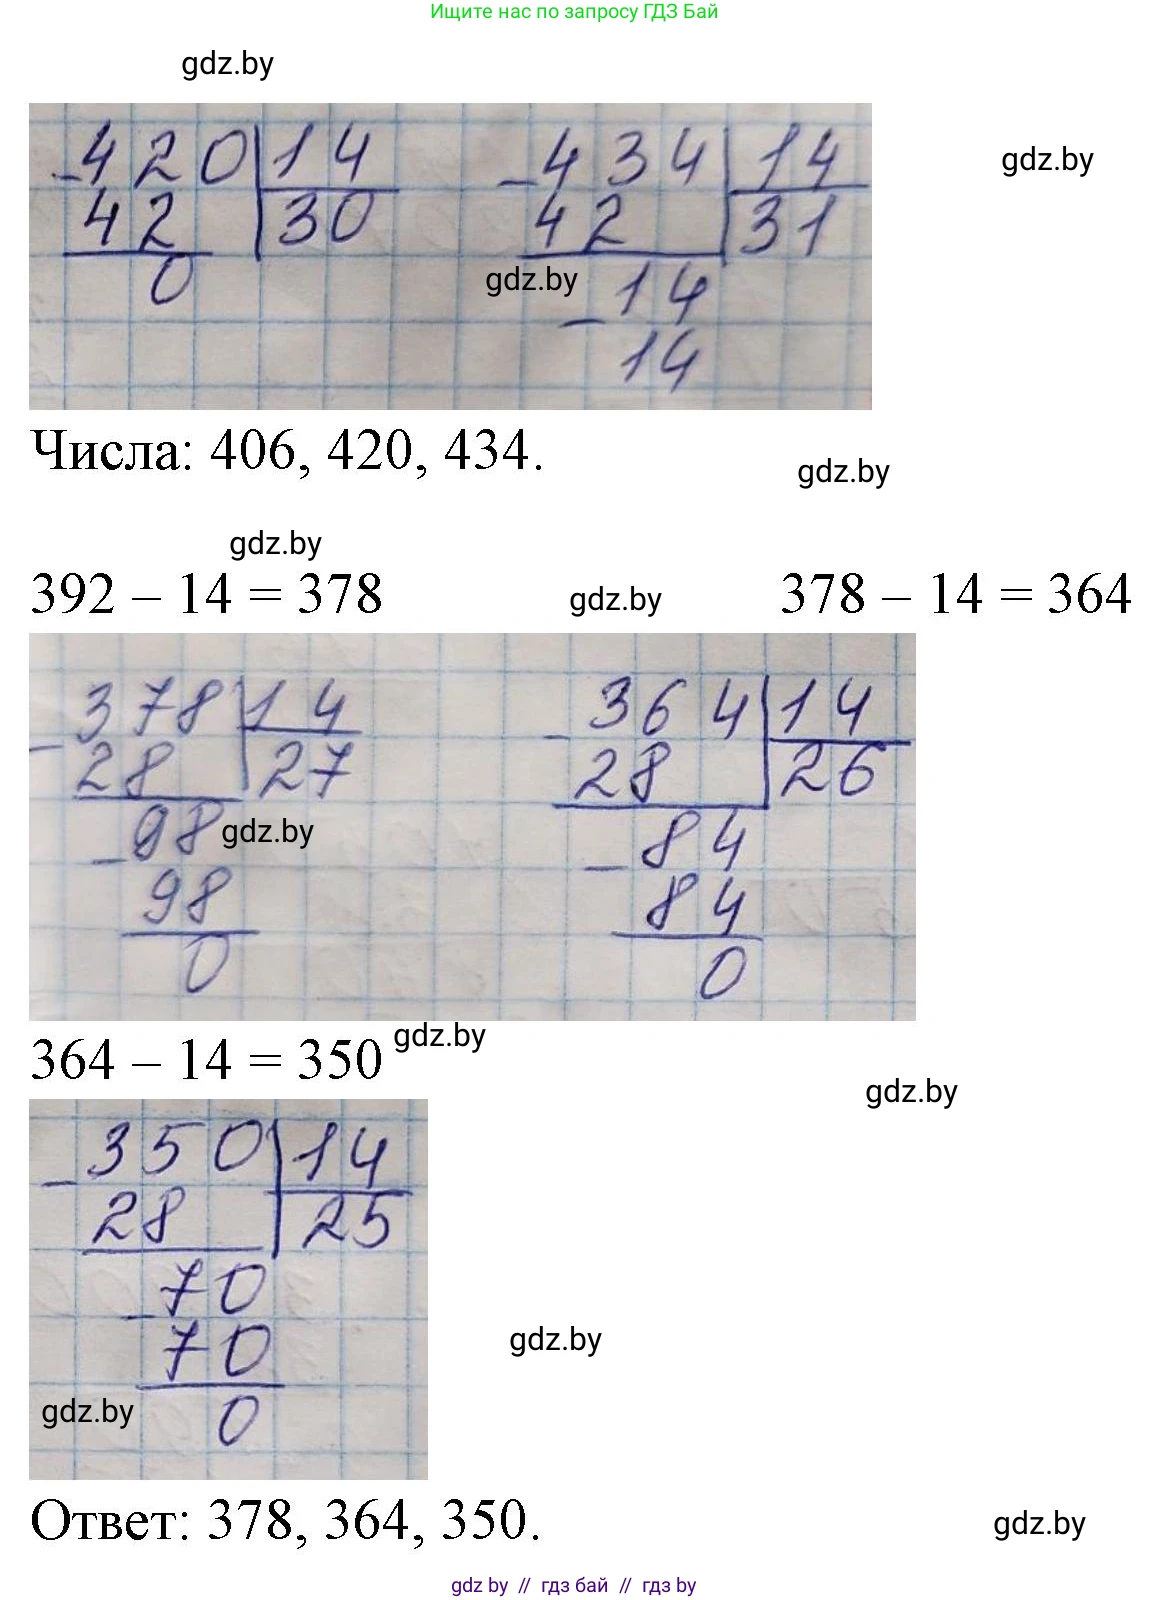 Ищите нас по запросу ГДЗ Бай
gdz.by
-420|14 -434|14
gdz.by
42 30 42 31
0 gdz.by -14
14
Числа: 406, 420, 434.
gdz.by
gdz.by
392 – 14 = 378 gdz.by 378 – 14 = 364
-378|14 -364|14
28 27 28 26
-98 gdz.by -84
98 84
0 0
364 – 14 = 350 gdz.by
gdz.by
-350|14
28 25
-70
70
gdz.by
gdz.by 0
Ответ: 378, 364, 350. gdz.by
gdz by // гдз бай // гдз by